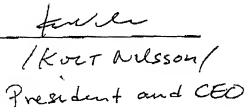 /Kurt Nilsson/
President and CEO